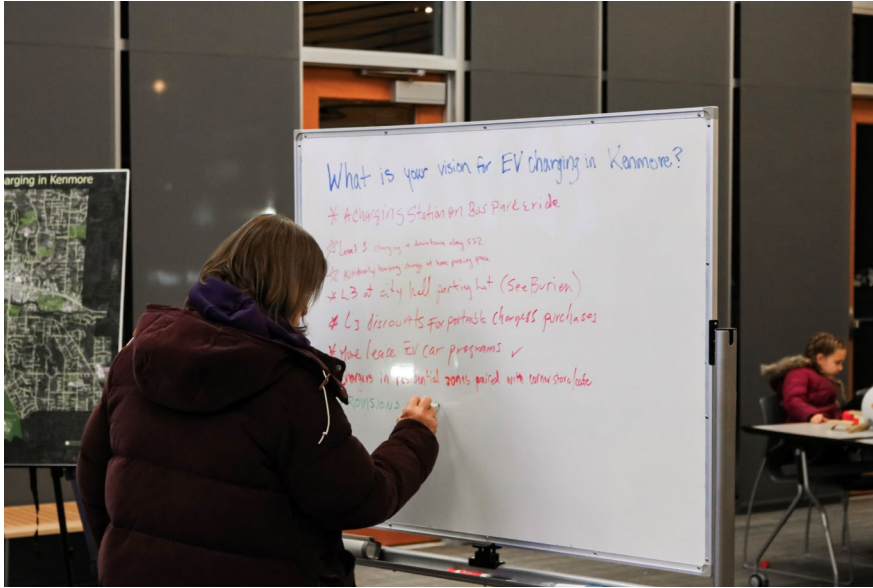 arging in Kenmore
What is your vision for EV charging in Kenmore?
* A charging Station on Bus Park & ride
Level 3 charging in downtown along 522
charge at home parking space
* L3 at city hall parking lot (See Burien)
* L3 discounts for portable chargers purchases
* More lease EV car programs ✓
in residential zones paired with corner store/cafe
ROVISIONS